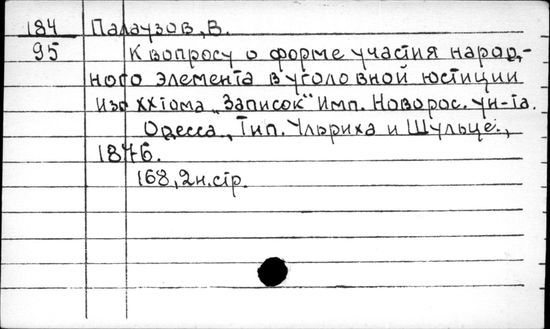 184 Палаузов, В.
95 К вопросу о форме участия народ-
ного элемента в уголовной юстиции
Изо XXI тома „Записок" Имп. Новорос. ун-та.
Одесса, Тип. Ульриха и Шульце.,
1876.
168, 2 н. стр.